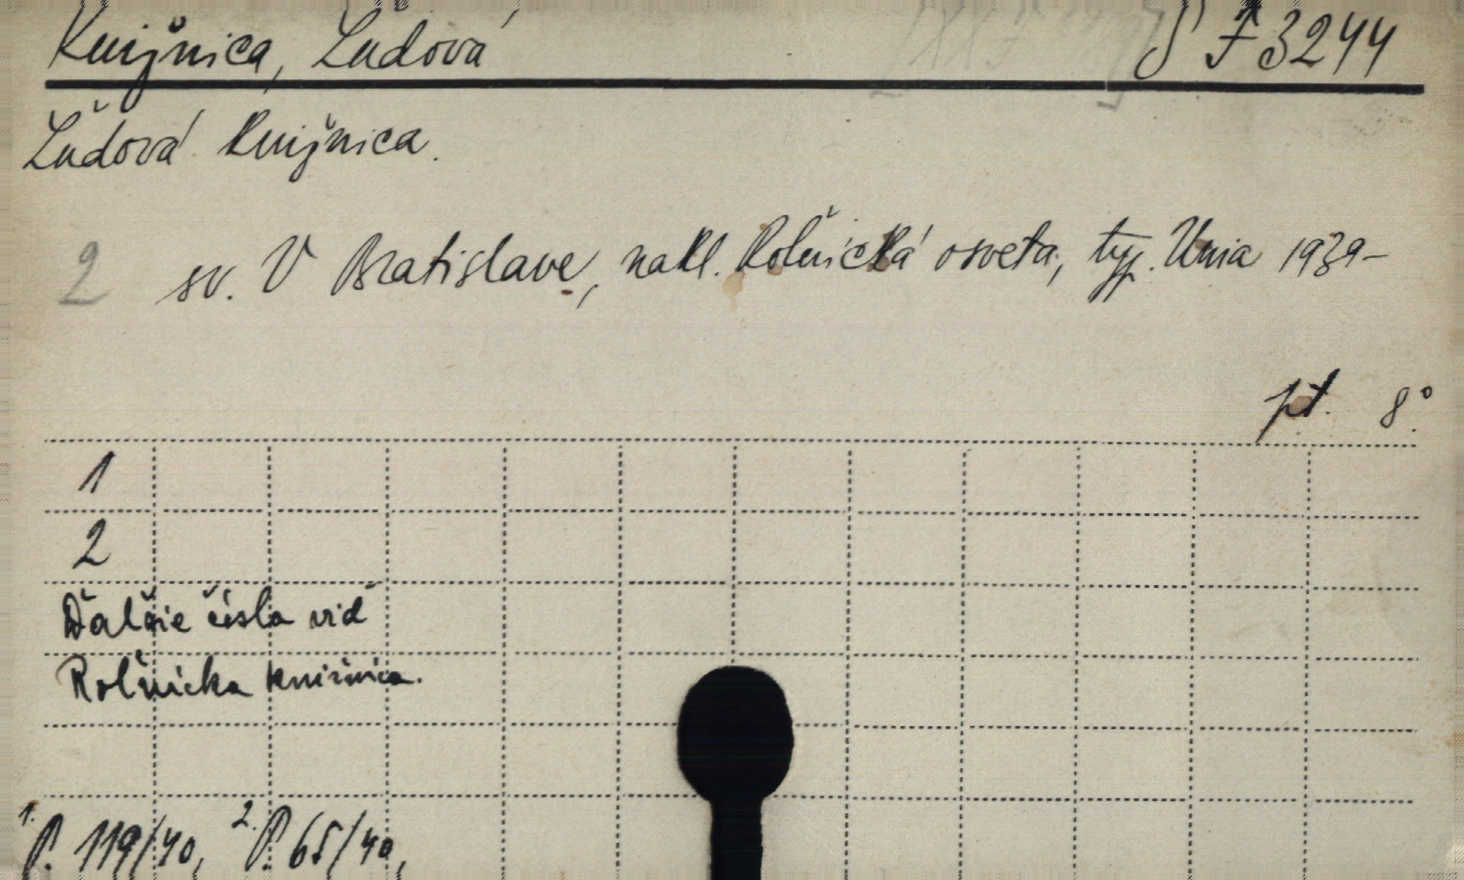 Knižnica, Ľudová S F 3244
Ľudová knižnica.
2 sv. V Bratislave, nakl. Roľnícká osveta, typ. Unia 1939-
pt. 8°.
1
2
Ďalšie čísla viď
Roľnícka knižnica.
1. P. 119/40, 2. P. 65/40,